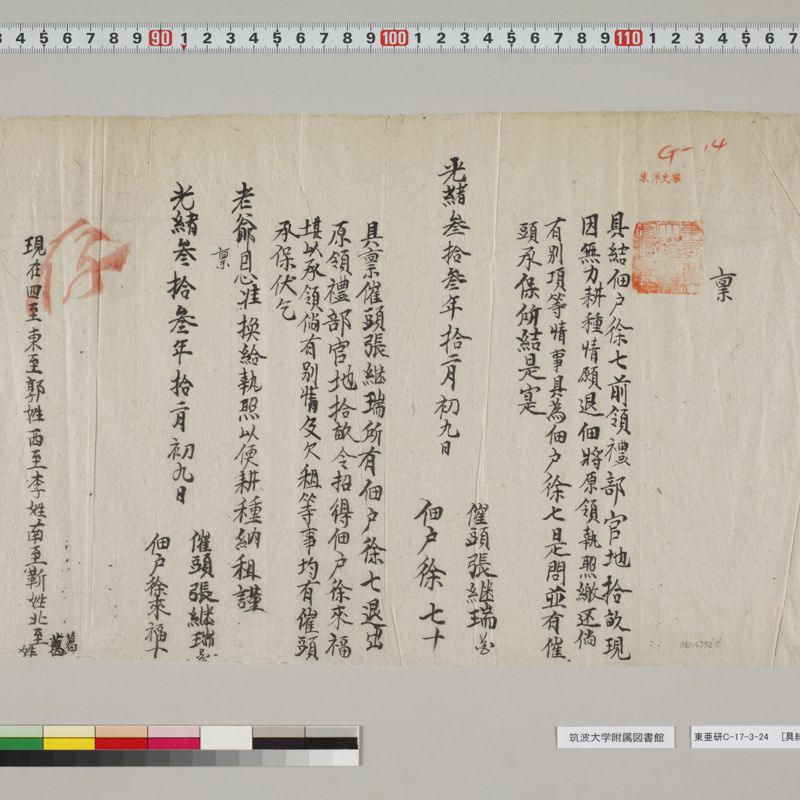 3 4 5 6 7 8 9 90 1 2 3 4 5 6 7 8 9 100 1 2 3 4 5 6 7 8 9 110 1 2 3 4 5 6 7
G-14
東洋文庫
稟
具結佃户徐七前領禮部官地拾畝現
因無力耕種情願退佃將原領執照繳还倘
有别項等情事具為佃户徐七是問並有催
頭承保所結是寔
光緒叁拾叁年拾一月初九日
催頭張継瑞
佃户徐七十
具稟催頭張継瑞所有佃户徐七退出
原領禮部官地拾畝今招得佃户徐來福
堪以承領倘有别情及欠租等事均有催頭
承保伏乞
老爺因恩准換給執照以便耕種納租謹
稟
光緒叁拾叁年拾一月初九日
催頭張継瑞
佃户徐來福十
現在四至東至郭姓西至李姓南至靳姓北至葛姓
筑波大学附属図書館
東亜研C-17-3-24